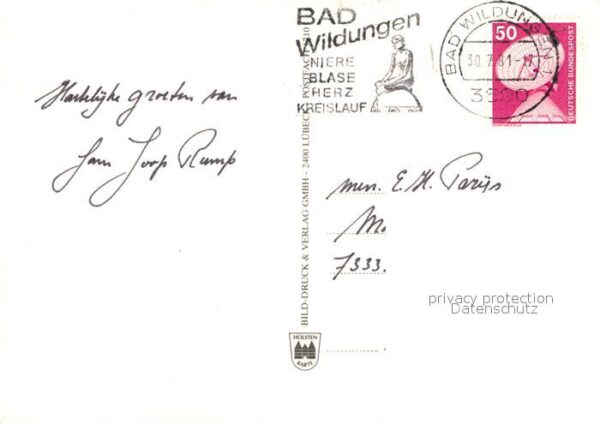 BAD
Wildungen
NIERE
BLASE
HERZ
KREISLAUF
BAD WILDUNGEN
30.7.81-17
3590
50
DEUTSCHE BUNDESPOST
Hartelijke groeten van
Rump
BILD-DRUCK & VERLAG GMBH - 2400 LÜBECK POSTFACH
mevr. E.H. Parijs
7333.
privacy protection
Datenschutz
HOLSTEN
KARTE